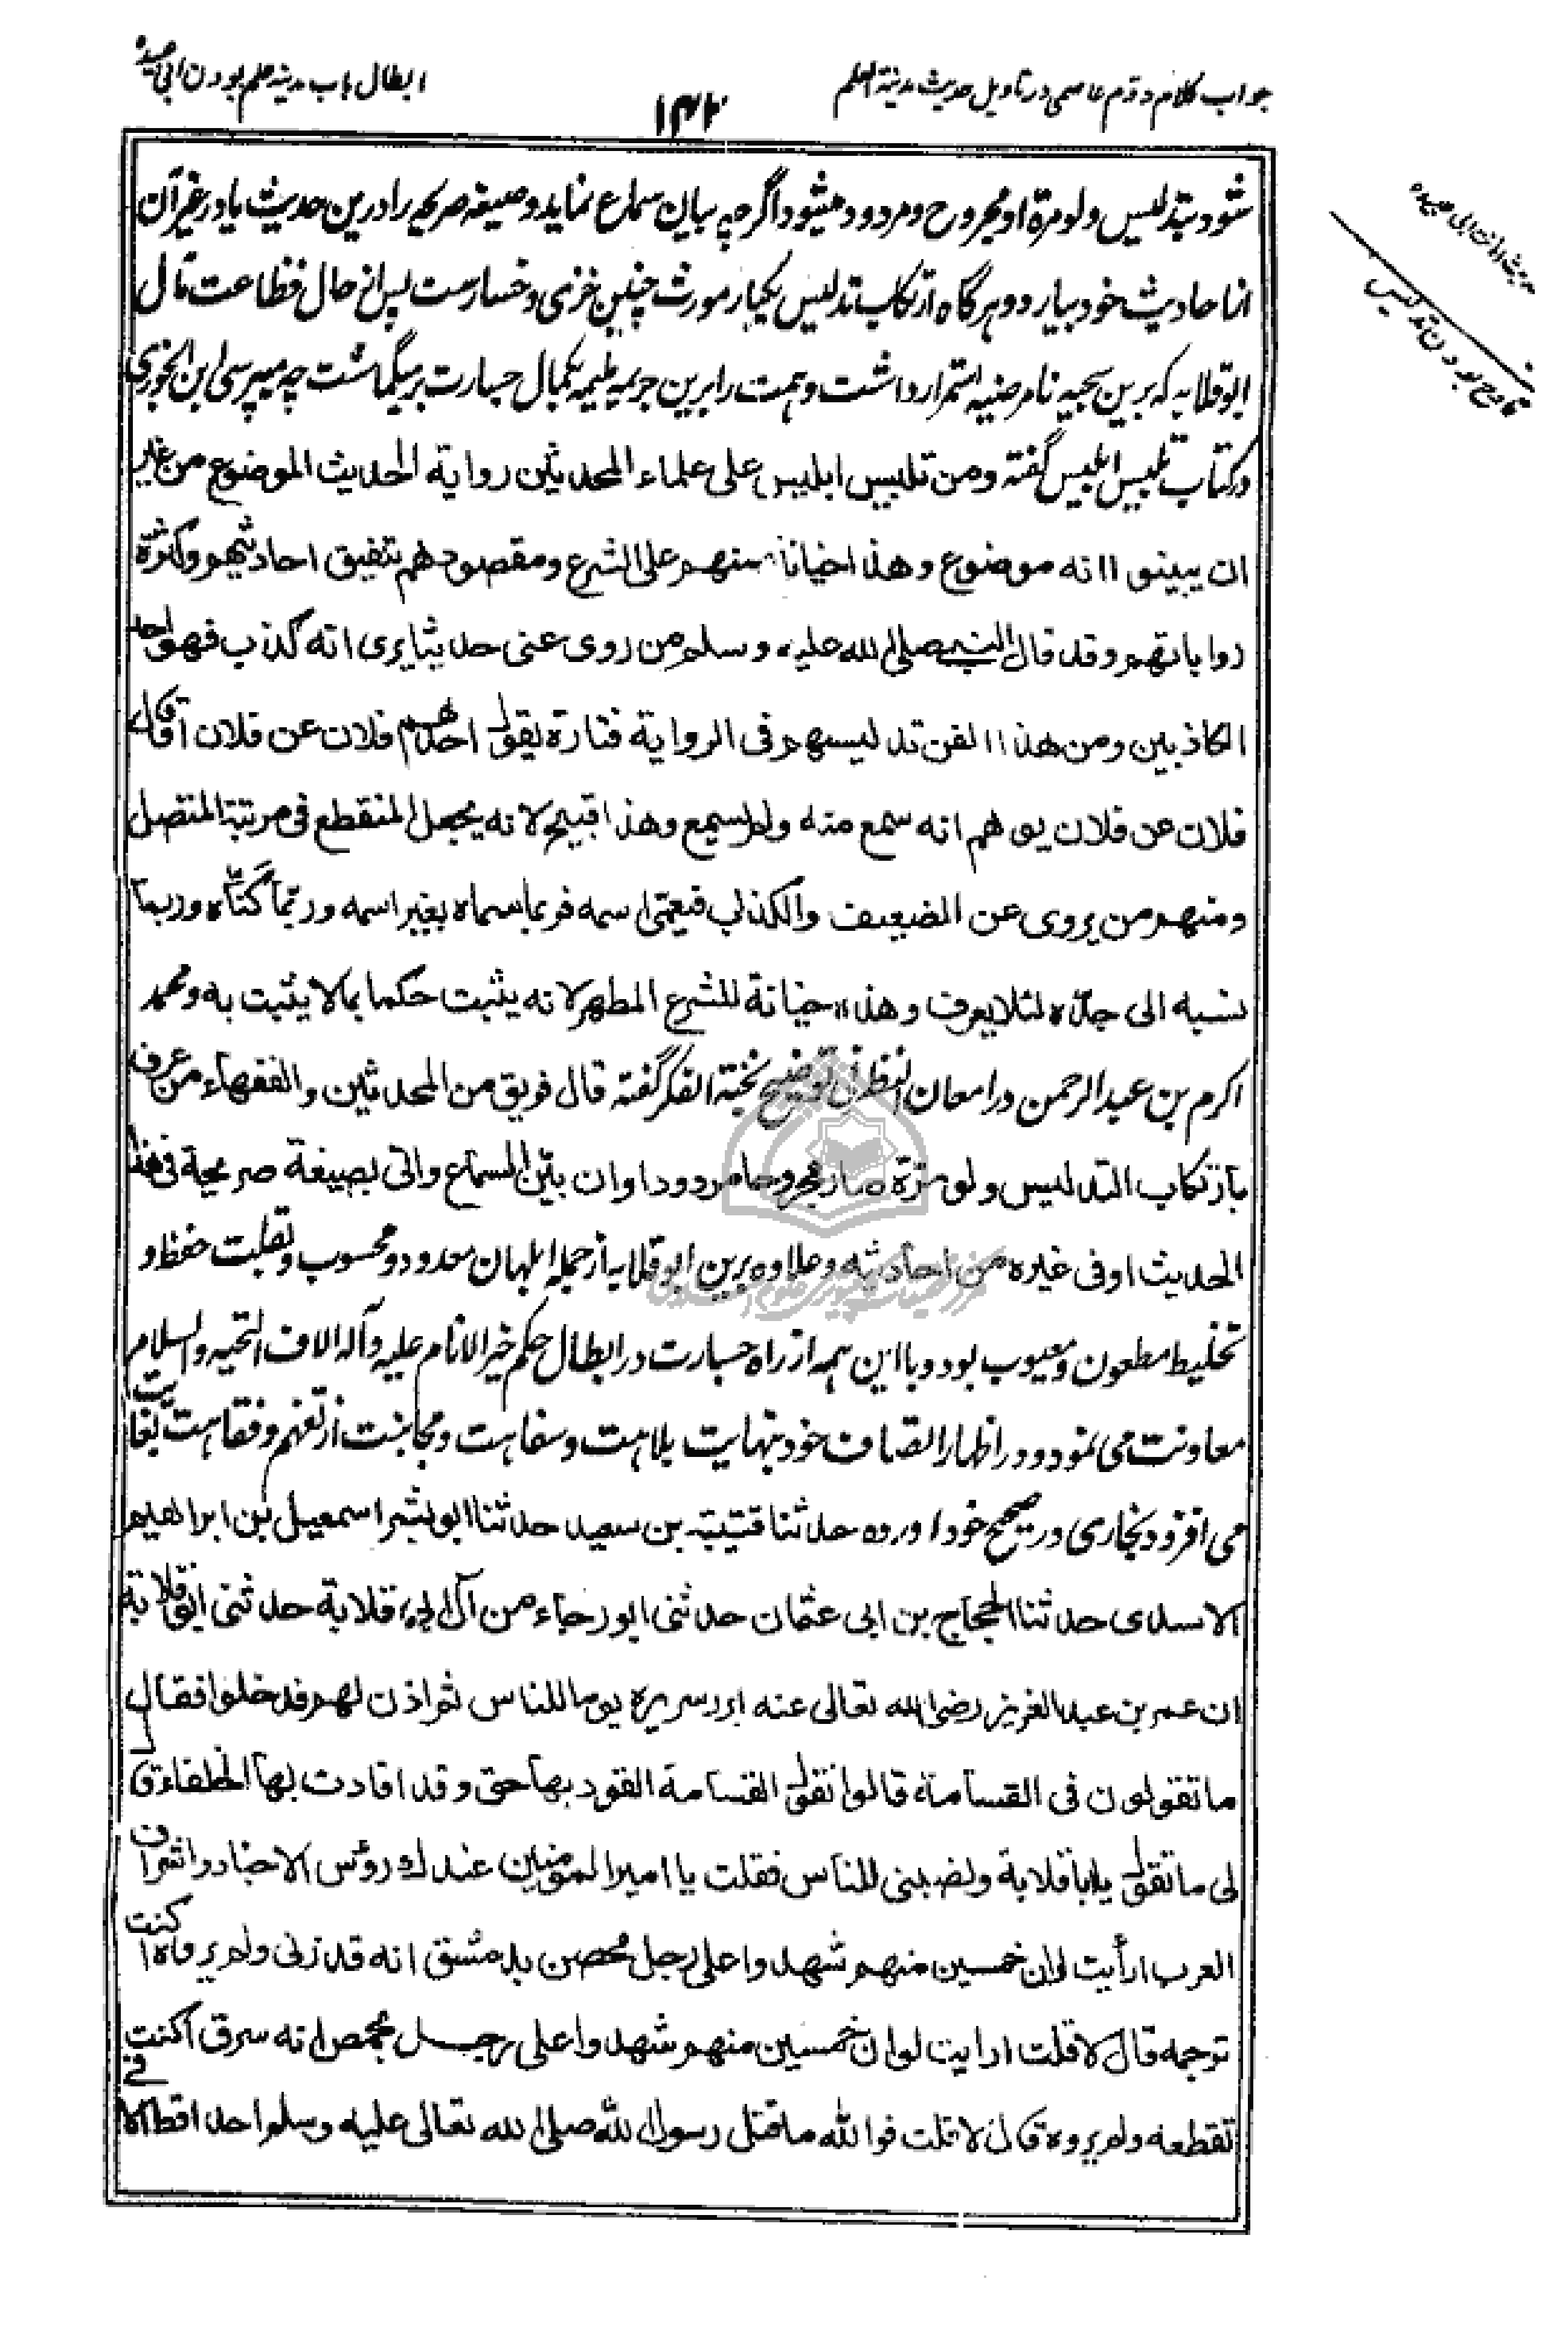 جواب كلام دوم عاصمی در تاویل حدیث مدینة العلم
۱۴۲
ابطال باب مدینه علم بودن ابی عبیده
حدیث امانت ابی عبیده
قادح بودن تدلیس
شود بتدلیس ولو مرة او مجروح و مردود میشود اگرچه بیان سماع نماید و صیغه صریحه را درین حدیث یا در غیر آن
از احادیث خود بیارد و هرگاه ارتکاب تدلیس یکبار مورث چنین خزی و خسارست پس از حال فظاعت مآل
ابو قلابه که برین سجیه نامرضیه استمرار داشت و همت را برین جریمه ملیمه بکمال جسارت بر میگماشت چه میپرسی ابن الجوزی
در کتاب تلبیس ابلیس گفته ومن تلبیس ابلیس على علماء المحدثين رواية الحديث الموضوع من غير
ان يبينوا انه موضوع وهذا خيانة منهم على الشرع ومقصودهم تنفيق احاديثهم وكثرة
رواياتهم وقد قال النبي صلى الله عليه وسلم من روى عنى حديثا يرى انه كذب فهو احد
الكاذبين ومن هذا الفن تدليسهم فى الرواية فتارة يقول احدهم فلان عن فلان او قال
فلان عن فلان يوهم انه سمع منه ولم يسمع وهذا قبيح لانه يجعل المنقطع فى مرتبة المتصل
ومنهم من يروى عن الضعيف والكذاب فيعمى اسمه فربما سماه بغير اسمه وربما كناه وربما
نسبه الى جده لئلا يعرف وهذه خيانة للشرع المطهر لانه يثبت حكما بما لا يثبت به و محمد
اکرم بن عبد الرحمن در امعان النظر فی توضیح نخبة الفکر گفته قال فريق من المحدثين والفقهاء من عرف
بارتكاب التدليس ولو مرة صار مجروحا مردودا وان بين السماع واتى بصيغة صريحة فى هذا
الحديث او فى غيره من احاديثه و علاوه برین ابو قلابه از جمله ابلهان معدود و محسوب و بقلت حفظ و
تخلیط مطعون و معیوب بود و با این همه از راه جسارت در ابطال حکم خیر الانام علیه و آله الاف التحیه والسلام
معاونت می نمود و در اظهار اتصاف خود بنهایت بلاهت و سفاهت و مجانبت از تفهم و فقاهت بغایت
می افزود بخاری در صحیح خود آورده حدثنا قتيبة بن سعيد حدثنا ابو بشر اسمعيل بن ابراهيم
الاسدى حدثنا الحجاج بن ابى عثمان حدثنى ابو رجاء من آل ابى قلابة حدثنى ابو قلابة
ان عمر بن عبد العزيز رضى الله تعالى عنه ابرز سريره يوما للناس ثم اذن لهم فدخلوا فقال
ما تقولون فى القسامة قالوا نقول القسامة القود بها حق وقد اقادت بها الخلفاء قال
لى ما تقول يا ابا قلابة ونصبنى للناس فقلت يا امير المومنين عندك رؤس الاجناد واشراف
العرب ارأيت لو ان خمسين منهم شهدوا على رجل محصن بدمشق انه قد زنى ولم يروه اكنت
ترجمه قال لا قلت ارايت لو ان خمسين منهم شهدوا على رجل بحمص انه سرق اكنت
تقطعه ولم يروه قال لا قلت فوالله ما قتل رسول الله صلى الله تعالى عليه وسلم احدا قط الا فى